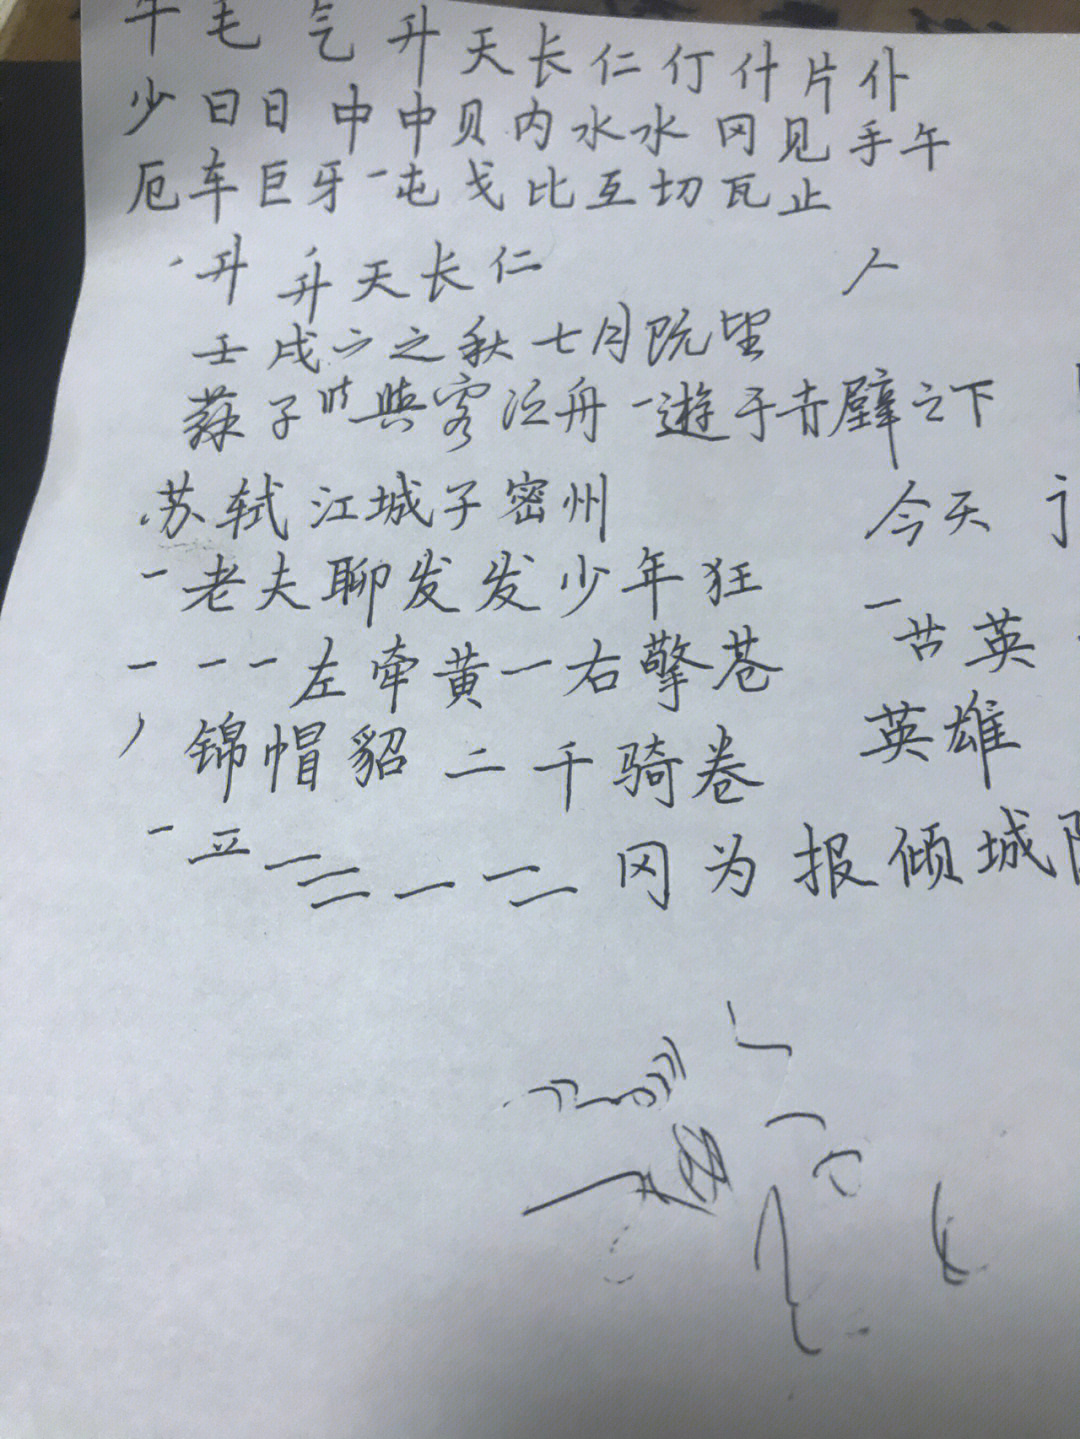 午毛气升天长仁仃什片仆
少曰日中中贝内水水冈见手午
厄车巨牙一屯戈比互切瓦止
升升天长仁 人
壬戌之秋七月既望
蘇子與客泛舟一遊于赤壁之下
苏轼江城子密州 今天
一老夫聊发发少年狂
一一一左牵黄一右擎苍 一古英
锦帽貂二千骑卷 英雄
一二一二冈为报倾城